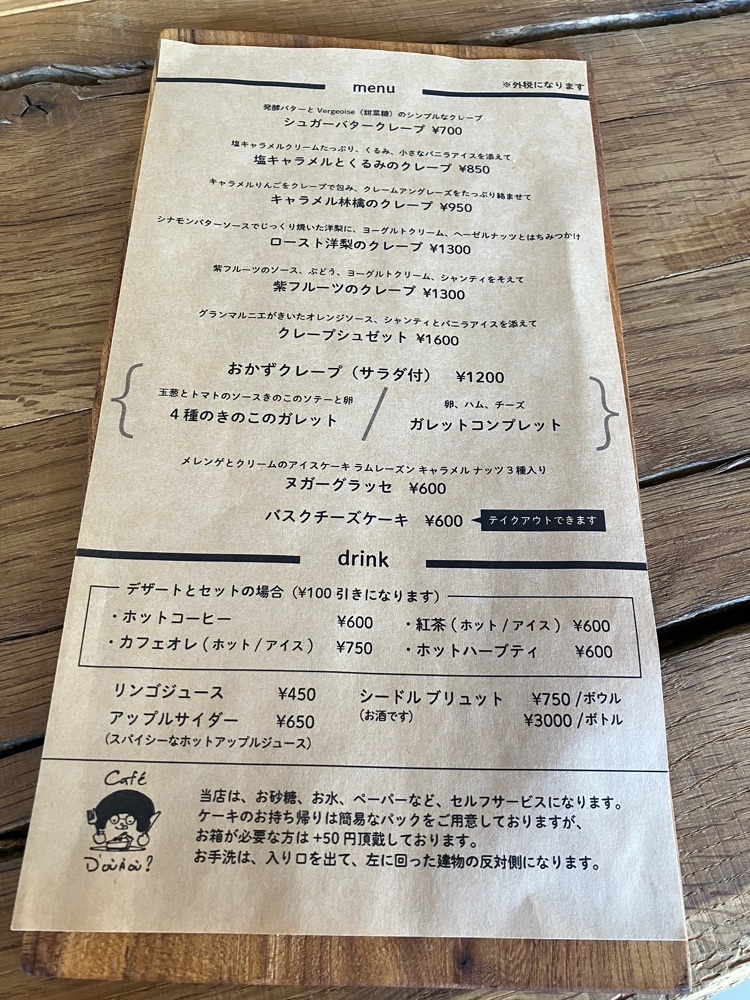 menu
※外税になります
発酵バターと Vergeoise（甜菜糖）のシンプルなクレープ
シュガーバタークレープ ¥700
塩キャラメルクリームたっぷり、くるみ、小さなバニラアイスを添えて
塩キャラメルとくるみのクレープ ¥850
キャラメルりんごをクレープで包み、クレームアングレーズをたっぷり絡ませて
キャラメル林檎のクレープ ¥950
シナモンバターソースでじっくり焼いた洋梨に、ヨーグルトクリーム、ヘーゼルナッツとはちみつかけ
ロースト洋梨のクレープ ¥1300
紫フルーツのソース、ぶどう、ヨーグルトクリーム、シャンティをそえて
紫フルーツのクレープ ¥1300
グランマルニエがきいたオレンジソース、シャンティとバニラアイスを添えて
クレープシュゼット ¥1600
おかずクレープ（サラダ付） ¥1200
玉葱とトマトのソースきのこのソテーと卵
４種のきのこのガレット
卵、ハム、チーズ
ガレットコンプレット
メレンゲとクリームのアイスケーキ ラムレーズン キャラメル ナッツ３種入り
ヌガーグラッセ ¥600
バスクチーズケーキ ¥600 テイクアウトできます
drink
デザートとセットの場合（¥100 引きになります）
・ホットコーヒー ¥600
・紅茶（ホット / アイス） ¥600
・カフェオレ（ホット / アイス） ¥750
・ホットハーブティ ¥600
リンゴジュース ¥450
シードル ブリュット ¥750 /ボウル
アップルサイダー ¥650
（お酒です） ¥3000 /ボトル
（スパイシーなホットアップルジュース）
Café
D'où Aoù?
当店は、お砂糖、お水、ペーパーなど、セルフサービスになります。
ケーキのお持ち帰りは簡易なパックをご用意しておりますが、
お箱が必要な方は +50 円頂戴しております。
お手洗は、入り口を出て、左に回った建物の反対側になります。